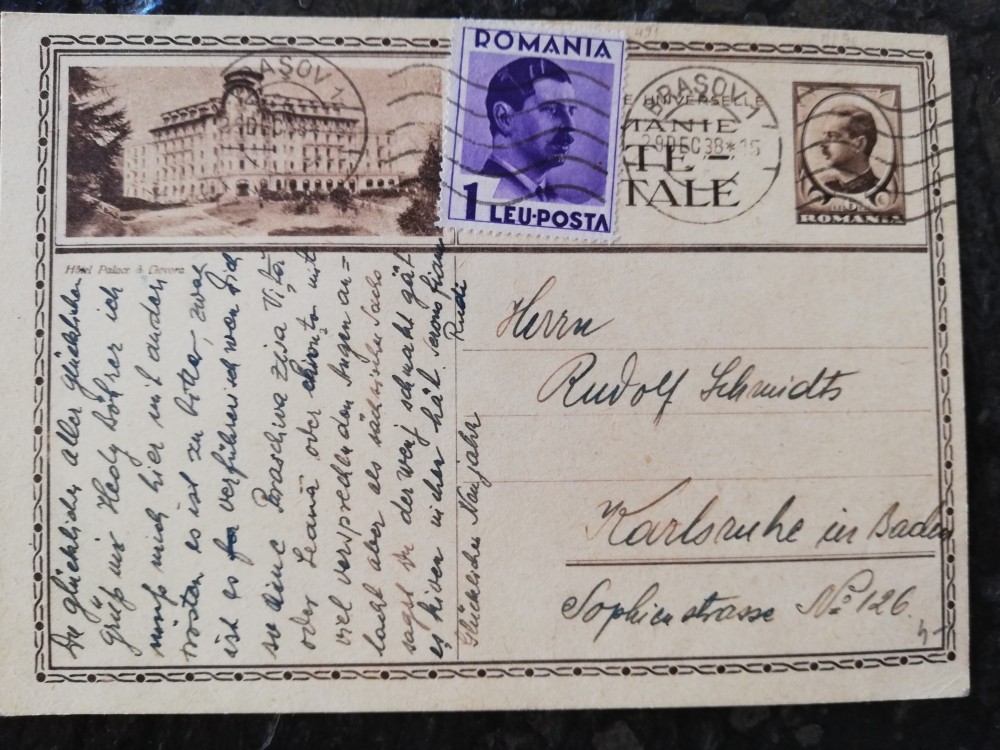 ROMANIA
1 LEU·POSTA
BRASOV 1
29DEC38*15
E UNIVERSELLE
MANIE
TE -
TALE
ROMANIA
Hôtel Palace à Govora
Herrn
Rudolf Schmidts
Karlsruhe in Baden
Sophienstrasse No 126.
Du glücklicher aller glücklichen
Grüß mir Hedy Böhrer ich
muß mich hier mit andern
trösten es ist zu bitter, zwar
ist es verführerisch wenn Dich
so eine
oder Leana oder mit
viel versprechenden Augen an=
lacht aber als sächsischer Sachs
sagst Du der weiß
es hier
Rudi
Glückliches Neujahr